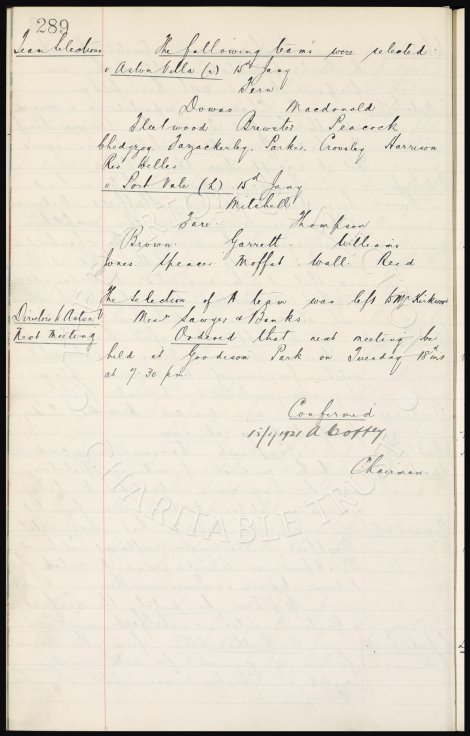 289
Team Selections
The following teams were selected
v Aston Villa (a) 15th Jany
Fern
Downs Macdonald
Fleetwood Brewster Peacock
Chedgzoy. Fazackerley. Parker. Crossley Harrison
Res Welles
v Port Vale (h) 15th Jany
Mitchell
Fare. Thompson
Brown. Garrett. Williams
Jones Spencer Moffat Wall Reid
The selection of A team was left to Mr Kirkwood
Directors to Aston V
Messrs Sawyer & Banks.
Next Meeting
Ordered that next meeting be
held at Goodison Park on Tuesday 18th ins
at 7.30 pm
Confirmed
18/1/1921 A Coffey
Chairman.
CHARITABLE TRUST